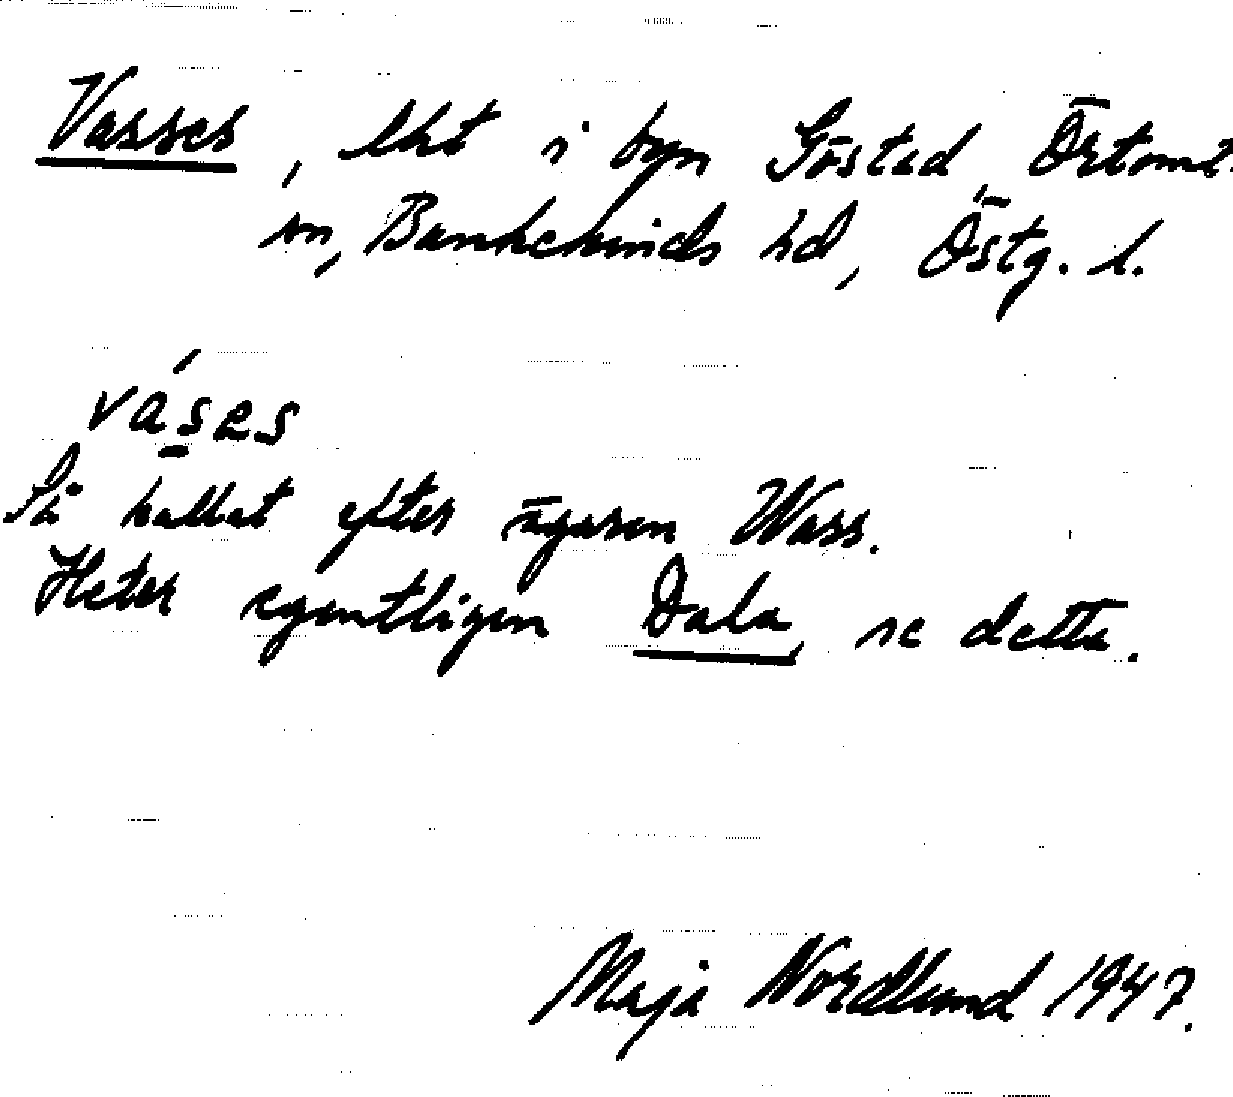 Vasses, lht i byn Göstad, Örtomt.
sn, Bankekinds hd, Östg. l.
váses
Så kallat efter ägaren Wass.
Heter egentligen Dala, se detta.
Maja Nordlund 1947.